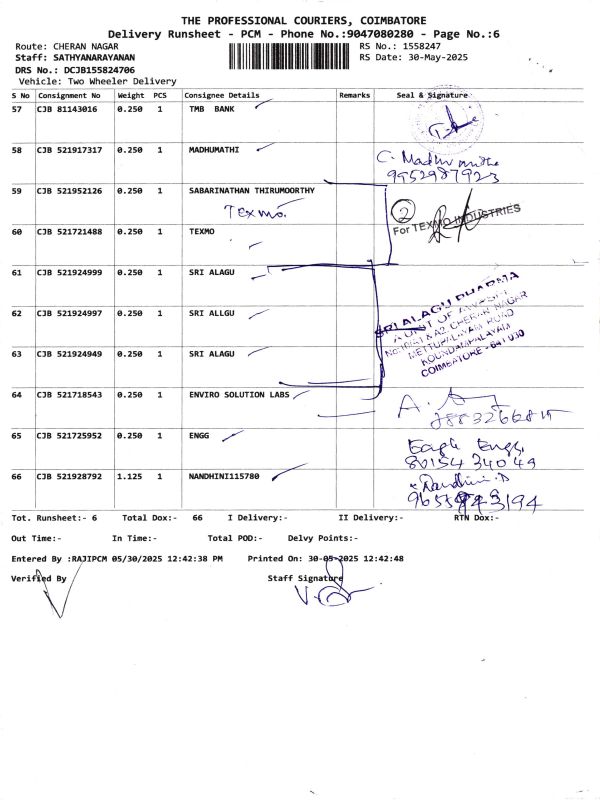 THE PROFESSIONAL COURIERS, COIMBATORE
Delivery Runsheet - PCM - Phone No.:9047080280 - Page No.:6
Route: CHERAN NAGAR RS No.: 1558247
Staff: SATHYANARAYANAN RS Date: 30-May-2025
DRS No.: DCJB155824706
Vehicle: Two Wheeler Delivery
S No Consignment No Weight PCS Consignee Details Remarks Seal & Signature
57 CJB 81143016 0.250 1 TMB BANK
58 CJB 521917317 0.250 1 MADHUMATHI
C. Madhumitha
9952987923
59 CJB 521952126 0.250 1 SABARINATHAN THIRUMOORTHY
Texmo. 2
For TEXMO INDUSTRIES
60 CJB 521721488 0.250 1 TEXMO
61 CJB 521924999 0.250 1 SRI ALAGU
SRI ALAGU PHARMA
62 CJB 521924997 0.250 1 SRI ALLGU
CHERAN NAGAR
METTUPALAYAM ROAD
KOUNDAMPALAYAM
COIMBATORE - 641 030
63 CJB 521924949 0.250 1 SRI ALAGU
64 CJB 521718543 0.250 1 ENVIRO SOLUTION LABS
65 CJB 521725952 0.250 1 ENGG
Eagle Engg,
80154 34049
66 CJB 521928792 1.125 1 NANDHINI115780
Nandhini.D
Tot. Runsheet:- 6 Total Dox:- 66 I Delivery:- II Delivery:- RTN Dox:-
Out Time:- In Time:- Total POD:- Delvy Points:-
Entered By :RAJIPCM 05/30/2025 12:42:38 PM Printed On: 30-05-2025 12:42:48
Verified By Staff Signature